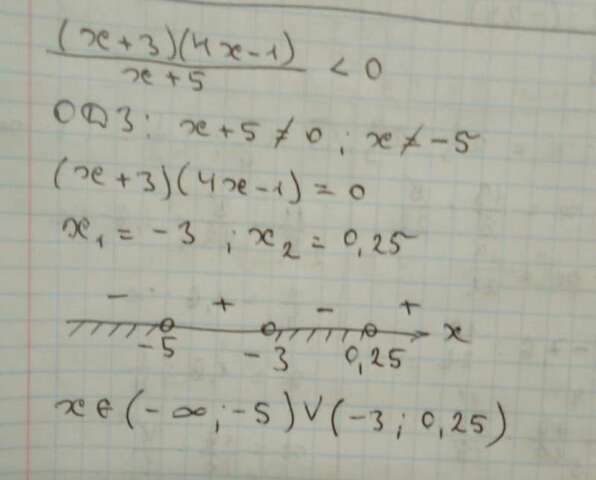 (x+3)(4x-1)
x+5
< 0
ОДЗ: x+5≠0; x≠-5
(x+3)(4x-1)=0
x₁ = -3; x₂ = 0,25
- + - +
-5 -3 0,25 x
x∈(-∞;-5)∨(-3; 0,25)